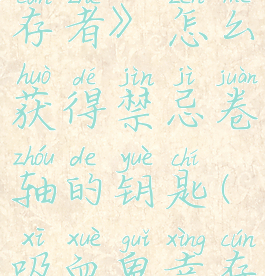 cún zhě zěn me
存者》怎么
huò dé jìn jì juàn
获得禁忌卷
zhóu de yuè chí
轴的钥匙(
xī xuè guǐ xìng cún
吸血鬼幸存